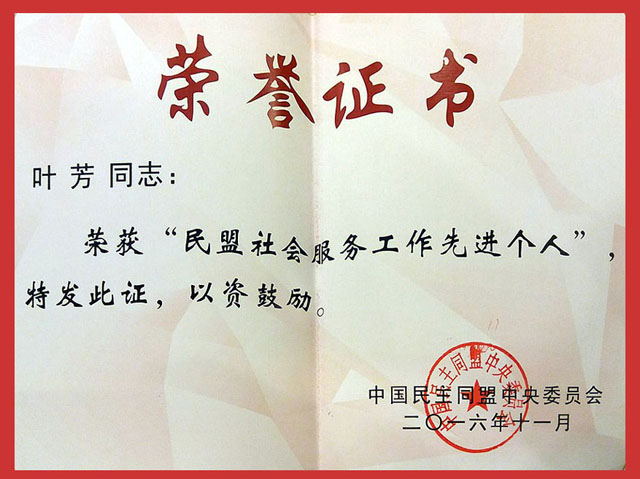 荣誉证书
叶芳同志：
荣获“民盟社会服务工作先进个人”，
特发此证，以资鼓励。
中国民主同盟中央委员会
二〇一六年十一月
中国民主同盟中央委员会